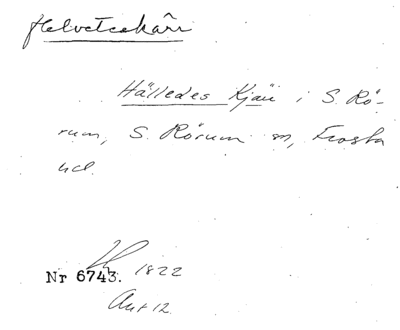 Helveteskärr
Hälledes Kjäu i S. Rö-
rum, S. Rörum sn, Frosta
hd.
Nr 6743. 1822
Akt 12.